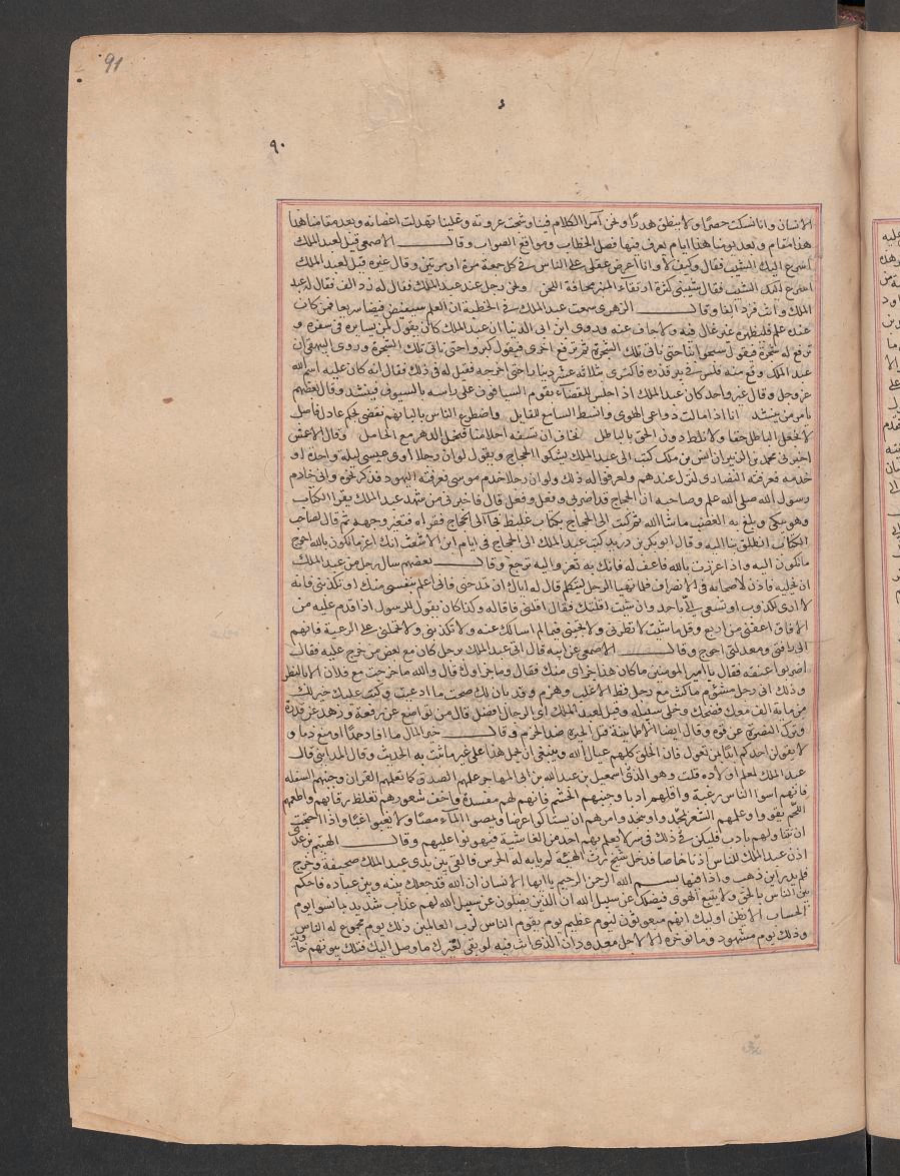 91
٩٠
الانسان وانا نسكت حصرا ولا ننطق هدرا ونحن امرا الكلام فينا وشجت عروقه وعلينا تهدلت اغصانه وبعد مقامنا هذا
هذا مقام وبعد يومنا هذا ايام يعرف فيها فصل الخطاب ومواقع الصواب وقال الاصمعي قيل لعبد الملك
اسرع اليك الشيب فقال وكيف لا وانا اعرض عقلي على الناس في كل جمعة مرة او مرتين وقال غيره قيل لعبد الملك
اسرع اليك الشيب فقال شيبني كثرة ارتقاء المنبر مخافة اللحن ولحن رجل عند عبد الملك فقال له زد الف فقال له عبد
الملك وانت فزد الفا وقال الزهري سمعت عبد الملك في الخطبة ان العلم سيقبض قبضا سريعا فمن كان
عنده علم فليظهره غير غال فيه ولا جاف عنه وروى ابن ابي الدنيا ان عبد الملك كان يقول لمن يسايره في سفره و
ترفع له شجرة فيقول سبحوا بنا حتى ناتي تلك الشجرة ثم ترفع اخرى فيقول كبروا حتى ناتي تلك الشجرة وروى البيهقي ان
عبد الملك وقع منه فلس في بير قذره فاكترى ثلاثة عشر دينارا حتى اخرجه فقيل له في ذلك فقال انه كان عليه اسم الله
عز وجل وقال غير واحد كان عبد الملك اذا جلس للقضاء يقوم السيافون على راسه بالسيوف فينشد وقال بعضهم
يامر من ينشد انا اذا مالت دواعي الهوى وانصت السامع للقايل واصطرع الناس بالبابهم نقضي بحكم عادل فاصل
لا نجعل الباطل حقا ولا نلط دون الحق بالباطل نخاف ان تسفه احلامنا فنخمل الدهر مع الخامل وقال الاعمش
اخبرني محمد بن الزبير ان انس بن ملك كتب الى عبد الملك يشكوا الحجاج ويقول لو ان رجلا اوى عيسى ليلة واحدة او
خدمه فعرفته النصارى لنزل عندهم ولعرفوا له ذلك ولو ان رجلا خدم موسى فعرفته اليهود فذكر نحوه واني خادم
رسول الله صلى الله عليه وصاحبه ان الحجاج قد اضر بي وفعل وفعل قال فاخبرني من شهد عبد الملك يقرا الكتاب
وهو يبكي وبلغ به الغضب ما شا الله ثم كتب الى الحجاج بكتاب غليظ فجا الى الحجاج فقراه فتغير وجهه ثم قال لصاحب
الكتاب انطلق بنا اليه وقال ابو بكر بن دريد كتب عبد الملك الى الحجاج في ايام ابن الاشعث انك اعز ما تكون بالله احوج
ما تكون اليه واذا عززت بالله فاعف له فانك به تعز واليه ترجع وقال بعضهم سال رجل من عبد الملك
ان يخليه فاذن لاصحابه في الانصراف فلما تهيا الرجل ليتكلم قال له اياك ان تمدحني فاني اعلم بنفسي منك او تكذبني فانه
لا اراى لكذوب او تسعى الي باحد وان شيت اقلتك فقال اقلني فاقاله وكذا كان يقول للرسول اذا قدم عليه من
الافاق اعفني من اربع وقل ما شيت لا تطرني ولا تجبني فيما لم اسالك عنه ولا تكذبني ولا تحملني على الرعية فانهم
الى رافتي ومعدلتي احوج وقال الاصمعي عن ابيه قال اتي عبد الملك برجل كان مع بعض من خرج عليه فقال
اضربوا عنقه فقال يا امير المومنين ما كان هذا جزاي منك فقال وما جزاوك قال والله ما خرجت مع فلان الا بالنظر لك
وذلك اني رجل مشؤم ما كنت مع رجل قط الا غلب وهزم وقد بان لك صحة ما ادعيت وكنت عليك خير لك
من ماية الف معك فضحك وخلى سبيله وقيل لعبد الملك اي الرجال افضل قال من تواضع عن رفعة وزهد عن قدرة
وترك النصرة عن قوة وقال ايضا لا طمانينة قبل الخبرة ضد الحزم وقال خير المال ما افاد حمدا او منع ذما و
لا يقولن احدكم ابدا بمن تعول فان الخلق كلهم عيال الله وينبغي ان يحمل هذا على غير ما ثبت به الحديث وقال المدايني قال
عبد الملك لمعلم اولاده قلت وهو الذي اسمعيل بن عبد الله بن ابي المهاجر علمهم الصدق كما تعلمهم القران وجنبهم السفلة
فانهم اسوا الناس رغبة واقلهم ادبا وجنبهم الحشم فانهم لهم مفسدة واحف شعورهم تغلظ رقابهم واطعمهم
اللحم يقووا وعلمهم الشعر يمجدوا وينجدوا ومرهم ان يستاكوا عرضا ويمصوا الماء مصا ولا يعبوا عبا واذا احتجت
ان تتناولهم بادب فليكن في ذلك في سر لا يعلم بهم احد من الغاشية فيهونوا عليهم وقال الهيثم بن عدي
اذن عبد الملك للناس اذنا خاصا فدخل شيخ رث الهيئة لم يابه له الحرس فالقى بين يدي عبد الملك صحيفة وخرج
فلم يدر اين ذهب واذا فيها بسم الله الرحمن الرحيم يا ايها الانسان ان الله قد جعلك بينه وبين عباده فاحكم
بين الناس بالحق ولا يتبع الهوى فيضلك عن سبيل الله ان الذين يضلون عن سبيل الله لهم عذاب شديد بما نسوا يوم
الحساب الا يظن اوليك انهم مبعوثون ليوم عظيم يوم يقوم الناس لرب العالمين ذلك يوم مجموع له الناس
وذلك يوم مشهود وما نوخره الا لاجل معدود ان الذي انت فيه لو بقي لغيرك ما وصل اليك فتلك بيوتهم خاوية